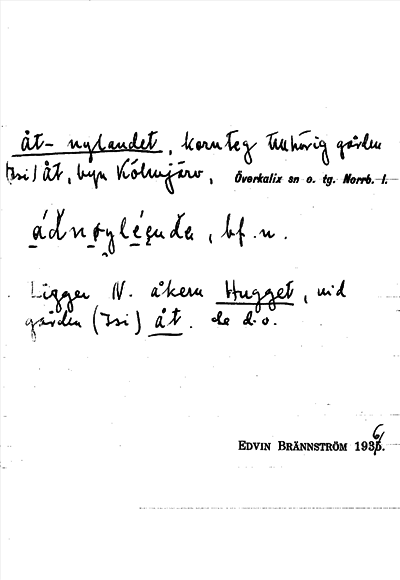 åt-nylandet, kornteg tillhörig gården
(Isi) åt, byn Kölmjärv, Överkalix sn o. tg. Norrb. l.
bf. n.
Ligger N. åkern Hugget, vid
gården (Isi) åt. de d.o.
EDVIN BRÄNNSTRÖM 1936.